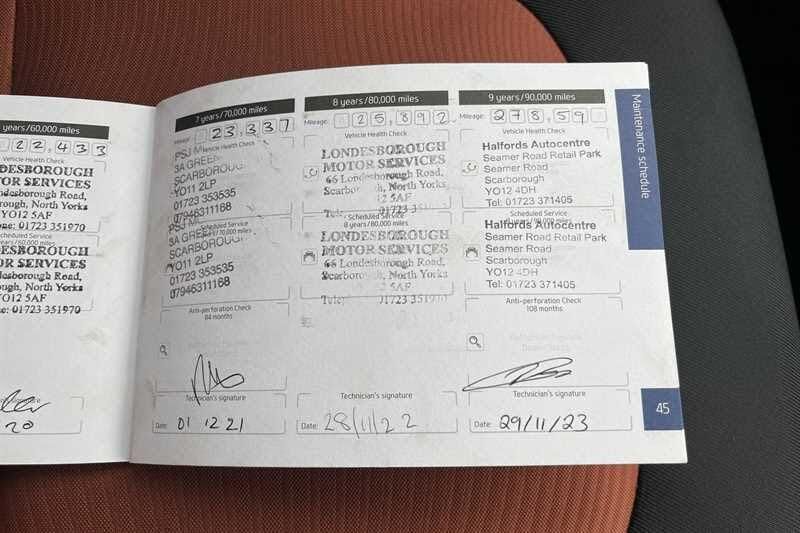 years/60,000 miles
22,433
Vehicle Health Check
LONDESBOROUGH
MOTOR SERVICES
Londesborough Road,
Scarborough, North Yorks
YO12 5AF
01723 351970
Scheduled Service
years/60,000 miles
LONDESBOROUGH
MOTOR SERVICES
Londesborough Road,
Scarborough, North Yorks
YO12 5AF
01723 351970
20
7 years/70,000 miles
Mileage: 23,337
Vehicle Health Check
PSJ M
3A GREEN
SCARBOROUG
YO11 2LP
01723 353535
07946311168
Scheduled Service
7 years/70,000 miles
PSJ M
3A GREEN
SCARBOROUG
YO11 2LP
01723 353535
07946311168
Anti-perforation Check
84 months
Technician's signature
Date: 01 12 21
8 years/80,000 miles
Mileage: 25,892
Vehicle Health Check
LONDESBOROUGH
MOTOR SERVICES
66 Londesborough Road,
Scarborough, North Yorks
5AF
Tele: 01723 351970
Scheduled Service
8 years/80,000 miles
LONDESBOROUGH
MOTOR SERVICES
66 Londesborough Road,
Scarborough, North Yorks
5AF
Tele: 01723 351970
Technician's signature
Date: 28/11/22
9 years/90,000 miles
Mileage: 278,59
Vehicle Health Check
Halfords Autocentre
Seamer Road Retail Park
Seamer Road
Scarborough
YO12 4DH
Tel: 01723 371405
Scheduled Service
9 years/90,000 miles
Halfords Autocentre
Seamer Road Retail Park
Seamer Road
Scarborough
YO12 4DH
Tel: 01723 371405
Anti-perforation Check
108 months
Technician's signature
Date: 29/11/23
Maintenance schedule
45